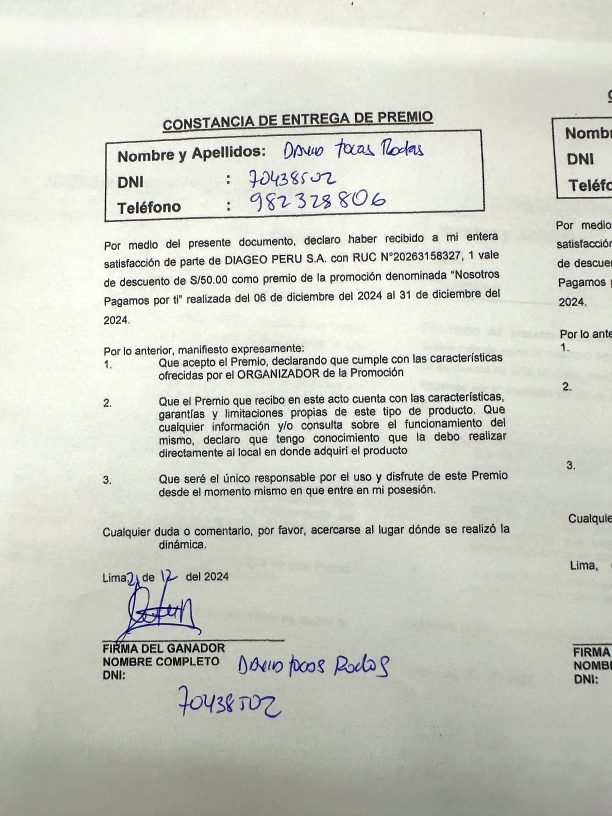 CONSTANCIA DE ENTREGA DE PREMIO
Nombre y Apellidos: David tocas Rodas
DNI : 70438502
Teléfono : 982328806
Por medio del presente documento, declaro haber recibido a mi entera
satisfacción de parte de DIAGEO PERU S.A. con RUC N°20263158327, 1 vale
de descuento de S/50.00 como premio de la promoción denominada “Nosotros
Pagamos por ti” realizada del 06 de diciembre del 2024 al 31 de diciembre del
2024.
Por lo anterior, manifiesto expresamente:
1. Que acepto el Premio, declarando que cumple con las características
ofrecidas por el ORGANIZADOR de la Promoción
2. Que el Premio que recibo en este acto cuenta con las características,
garantías y limitaciones propias de este tipo de producto. Que
cualquier información y/o consulta sobre el funcionamiento del
mismo, declaro que tengo conocimiento que la debo realizar
directamente al local en donde adquirí el producto
3. Que seré el único responsable por el uso y disfrute de este Premio
desde el momento mismo en que entre en mi posesión.
Cualquier duda o comentario, por favor, acercarse al lugar dónde se realizó la
dinámica.
Lima, 21 de 12 del 2024
FIRMA DEL GANADOR
NOMBRE COMPLETO David tocas Rodas
DNI:
70438502
Nomb
DNI
Teléfo
Por medio
satisfacción
de descue
Pagamos p
2024.
Por lo ante
1.
2.
3.
Cualquie
Lima,
FIRMA
NOMB
DNI: